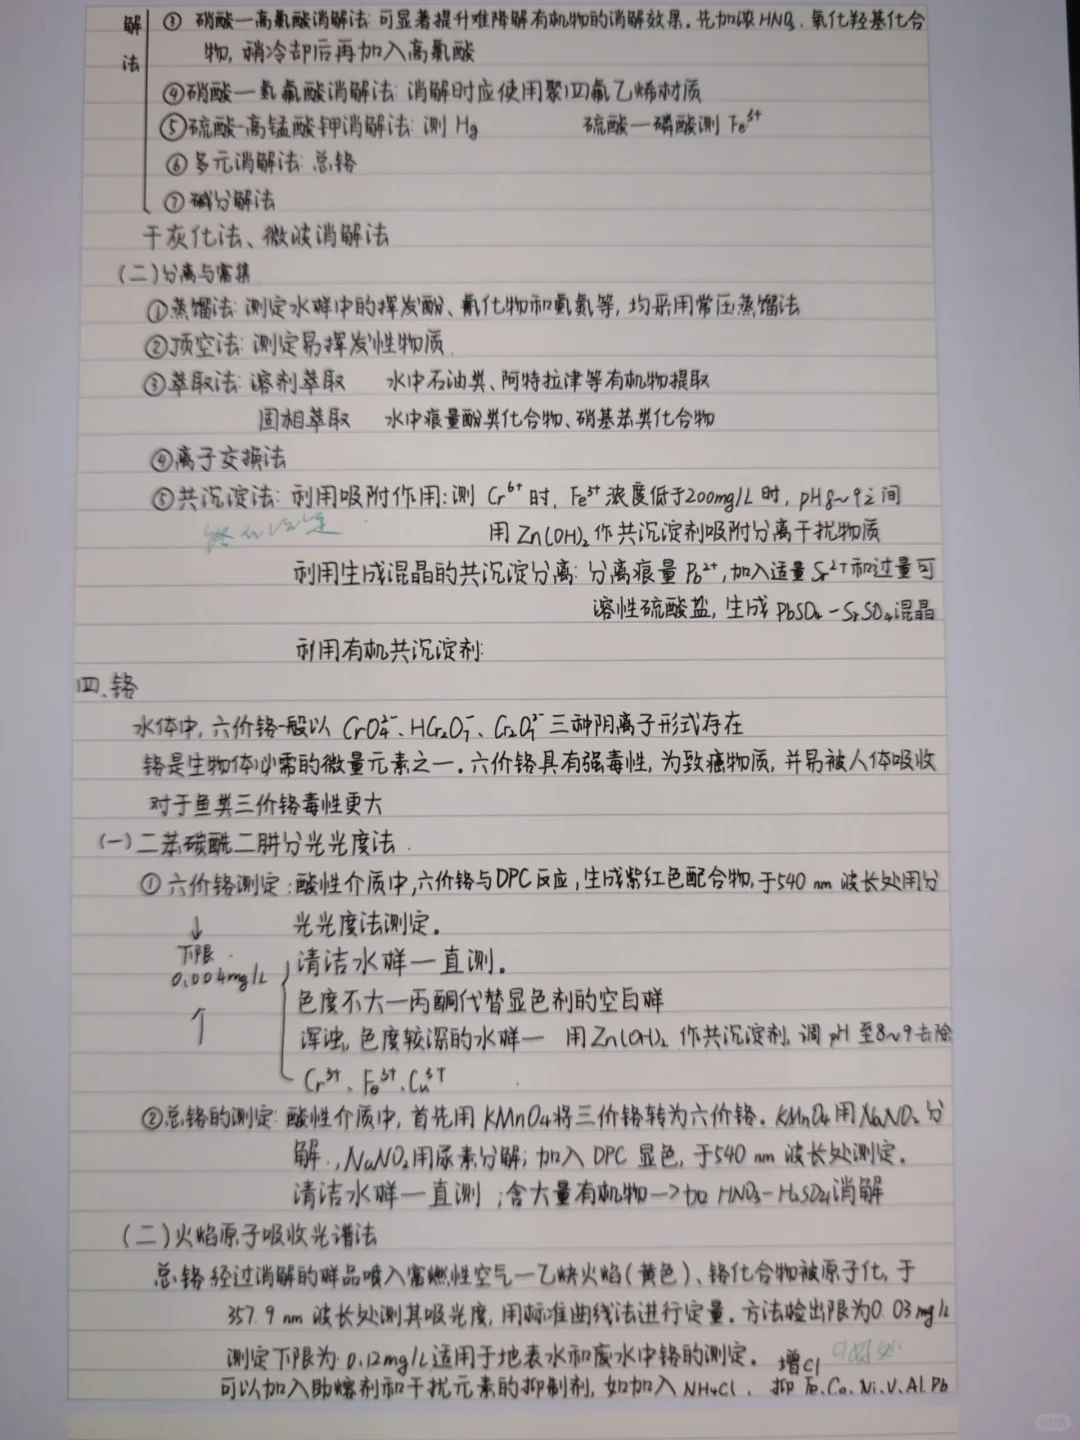 解
法
③ 硝酸—高氯酸消解法: 可显著提升难降解有机物的消解效果。先加浓HNO₃, 氧化羟基化合
物, 稍冷却后再加入高氯酸
④硝酸—氢氟酸消解法: 消解时应使用聚四氟乙烯材质
⑤硫酸-高锰酸钾消解法: 测 Hg 硫酸—磷酸测 Fe³⁺
⑥ 多元消解法: 总铬
⑦ 碱分解法
干灰化法、微波消解法
(二)分离与富集
①蒸馏法: 测定水样中的挥发酚、氰化物和氨氮等, 均采用常压蒸馏法
②顶空法: 测定易挥发性物质.
③萃取法: 溶剂萃取 水中石油类、阿特拉津等有机物提取
固相萃取 水中痕量酚类化合物、硝基苯类化合物
④离子交换法
⑤共沉淀法: 利用吸附作用: 测 Cr⁶⁺ 时, Fe³⁺ 浓度低于200mg/L 时, pH 8~9之间
用 Zn(OH)₂ 作共沉淀剂吸附分离干扰物质
利用生成混晶的共沉淀分离: 分离痕量 Pb²⁺, 加入适量 Sr²⁺和过量可
溶性硫酸盐, 生成 PbSO₄-SrSO₄混晶
利用有机共沉淀剂:
四、铬
水体中, 六价铬一般以 CrO₄²⁻、HCr₂O₇⁻、Cr₂O₇²⁻ 三种阴离子形式存在
铬是生物体必需的微量元素之一。六价铬具有强毒性, 为致癌物质, 并易被人体吸收
对于鱼类三价铬毒性更大
(一)二苯碳酰二肼分光光度法.
① 六价铬测定: 酸性介质中, 六价铬与DPC反应, 生成紫红色配合物, 于540 nm 波长处用分
光光度法测定。
↓
下限.
0.004mg/L
↑
清洁水样—直测。
色度不大—丙酮代替显色剂的空白样
浑浊, 色度较深的水样— 用Zn(OH)₂ 作共沉淀剂, 调 pH 至8~9去除
Cr³⁺、Fe³⁺、Cu³⁺
②总铬的测定: 酸性介质中, 首先用 KMnO₄将三价铬转为六价铬。KMnO₄用NaNO₂分
解., NaNO₂用尿素分解; 加入 DPC 显色, 于540 nm 波长处测定。
清洁水样—直测; 含大量有机物—>加 HNO₃-H₂SO₄消解
(二)火焰原子吸收光谱法
总铬经过消解的样品喷入富燃性空气—乙炔火焰(黄色)、铬化合物被原子化, 于
357.9 nm 波长处测其吸光度, 用标准曲线法进行定量。方法检出限为0.03 mg/L
测定下限为 0.12mg/L适用于地表水和废水中铬的测定。 增Cl
可以加入助熔剂和干扰元素的抑制剂, 如加入 NH₄Cl, 抑 Fe、Co、Ni、V、Al、Pb